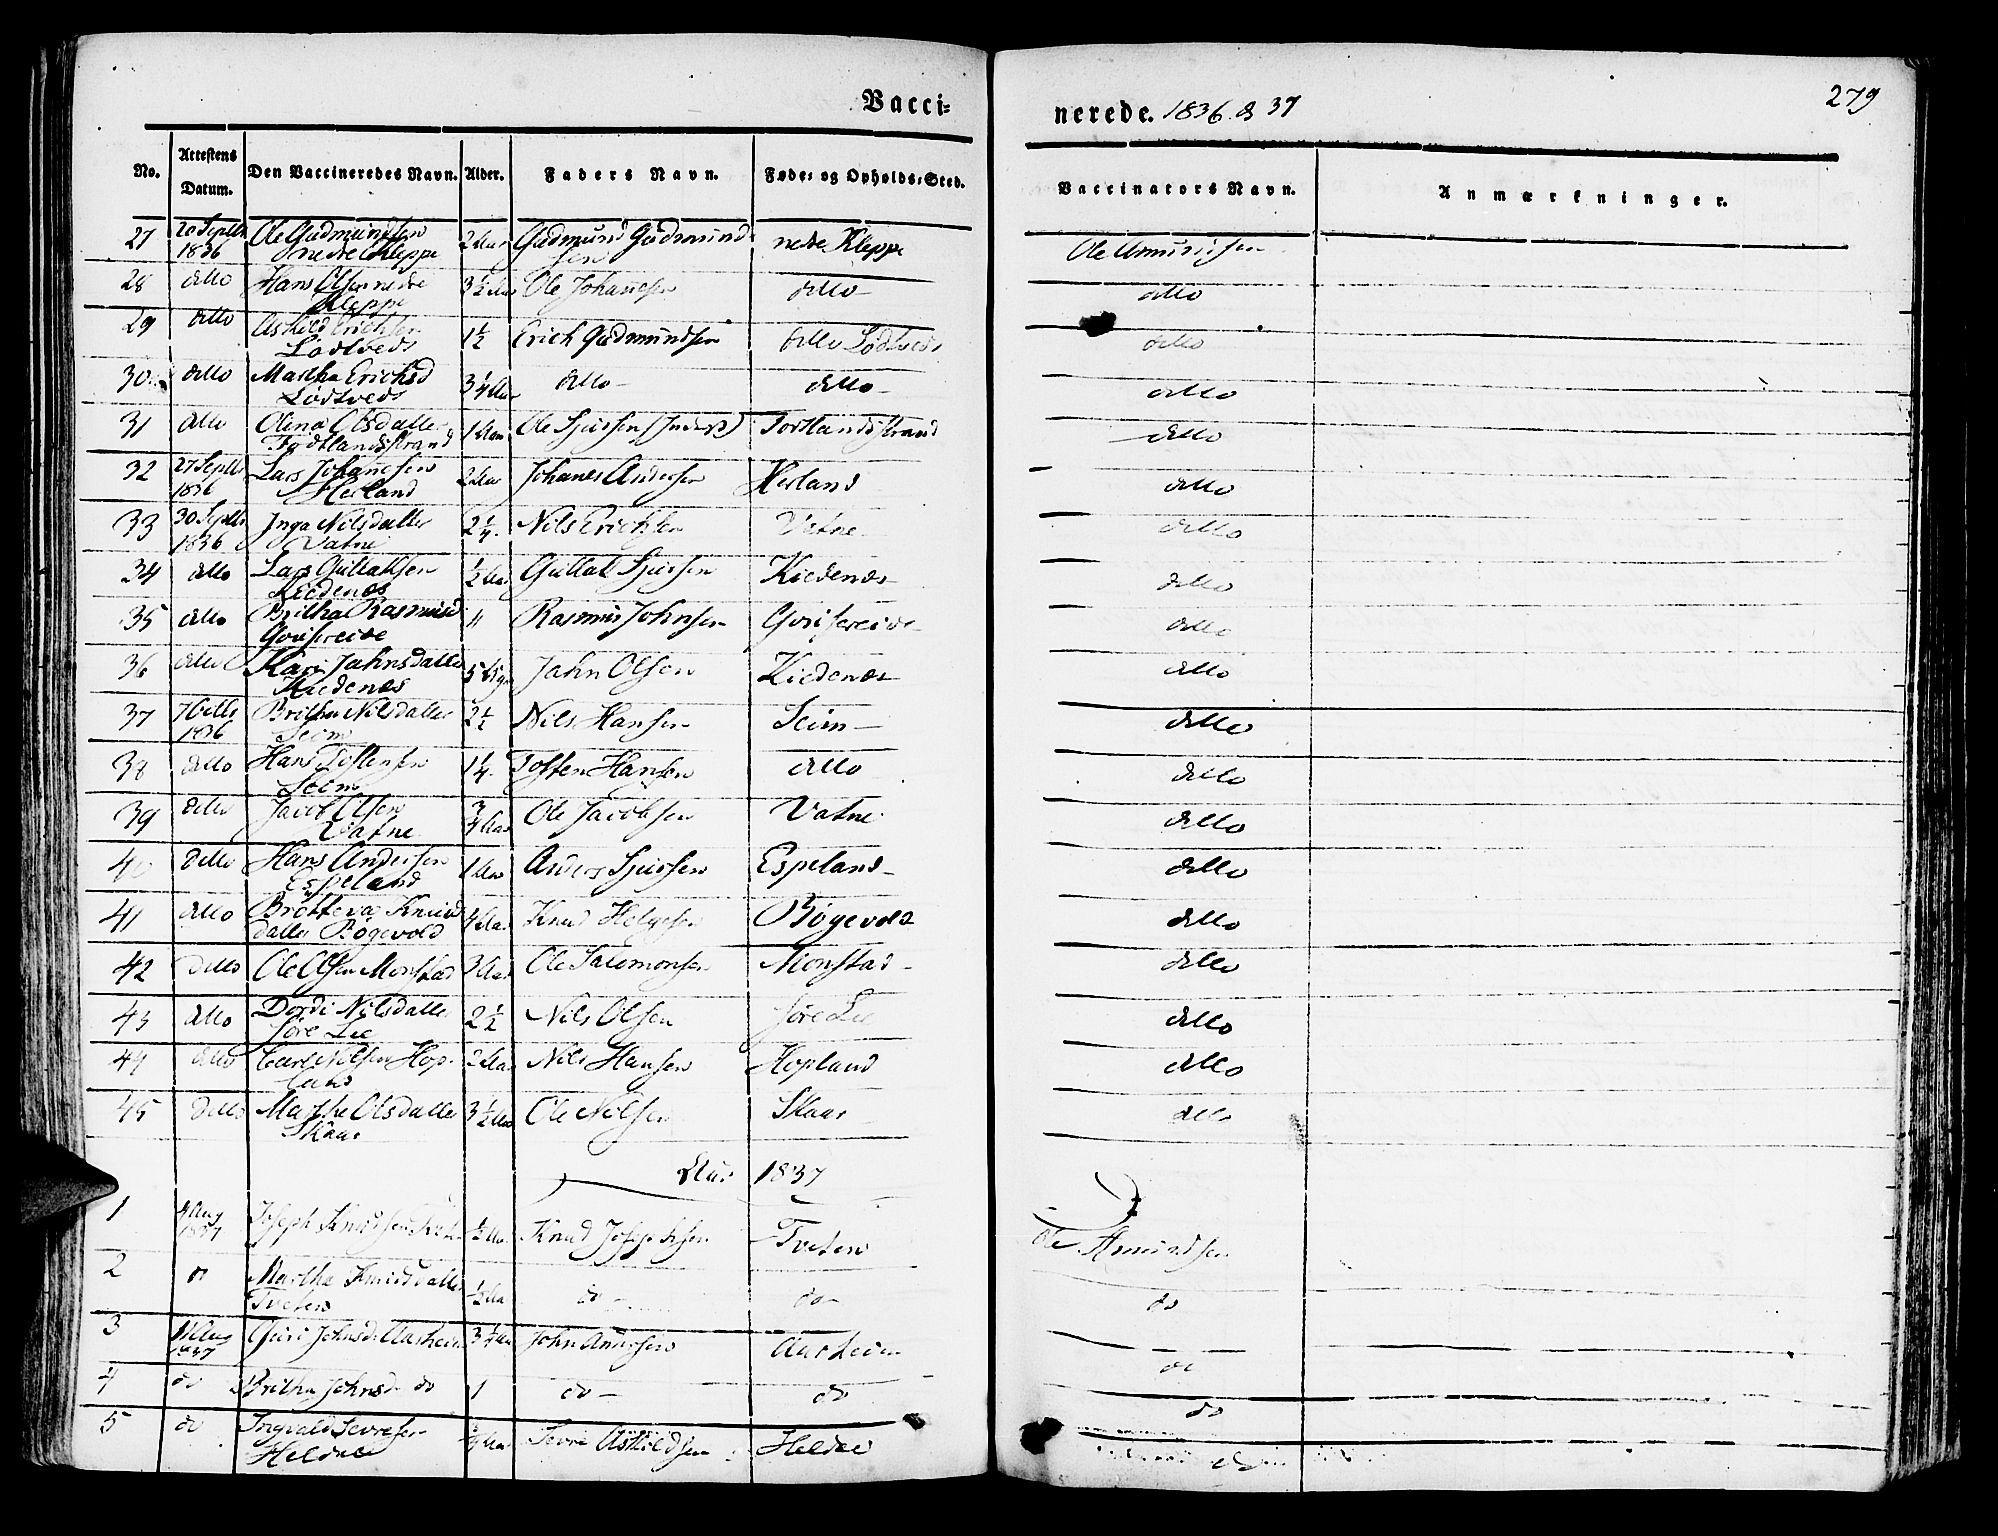 Vacci-
nerede. 1836 & 37
279
No. Attestens Datum. Den Vaccineredes Navn. Alder. Faders Navn. Føde- og Opholds-Sted. Vaccinators Navn. Anmærkninger.
27 20 Septbr 1836 Ole Gudmundsen nedre Kleppe 2 Aar Gudmund Gudmundsen nedre Kleppe Ole Amundsen
28 ditto Hans Olsen nedre Kleppe 3½ Aar Ole Johannesen ditto ditto
29 ditto Askild Erichsen Lødtveds 1½ Erich Gudmundsen ditto Lødtveds ditto
30 ditto Martha Erichsd Lødtveds 3¼ Aar ditto ditto ditto
31 ditto Olina Olsdatter 1 Aar Ole Sjursen ditto
32 27 Septbr 1836 Lars Johannesen Herland 2 Aar Johanes Andersen Herland ditto
33 30 Septbr 1836 Inga Nilsdatter Vatne 2¼ Nils Erichsen Vatne ditto
34 ditto Lars Guttalsen Kiedenæs ½ Aar Guttal Sjursen Kiedenæs ditto
35 ditto Britha Rasmusd " Rasmus Johnsen ditto
36 ditto Kari Jahnsdatter Kiedenæs Jahn Olsen Kiedenæs ditto
37 7 Octbr 1836 Britha Nilsdatter Seim 2½ Nils Hansen Seim ditto
38 ditto Hans Tostensen Seim 1¼ Tosten Hansen ditto ditto
39 ditto Jacob Olsen Vatne ¾ Aar Ole Jacobsen Vatne ditto
40 ditto Hans Andersen Espeland 1 Aar Anders Sjursen Espeland ditto
41 ditto Brotteva Knuds datter Bøgevold 4 Aar Knud Helgesen Bøgevold ditto
42 ditto Ole Olsen Monstad 3 Aar Ole Salomonsen Monstad ditto
43 ditto Dordi Nilsdatter søre Lie 2½ Nils Olsen søre Lie ditto
44 ditto Carl Nilsen Hopland 2 Aar Nils Hansen Hopland ditto
45 ditto Marthe Olsdatter Skaar 3½ Aar Ole Nilsen Skaar ditto
Aar 1837
1 4 Aug 1837 Joseph Knudsen ½ Aar Knud Josephsen Tveten Ole Amundsen
2 do Martha Knudsdatter Tveten do do do
3 11 Aug 1837 Guri Johnsd. Aarheim John Anderssen Aarheim do
4 do Britha Johnsd. do 1 do do do
5 do Ingvald Sevresen Heldal Sevre Askildsen do